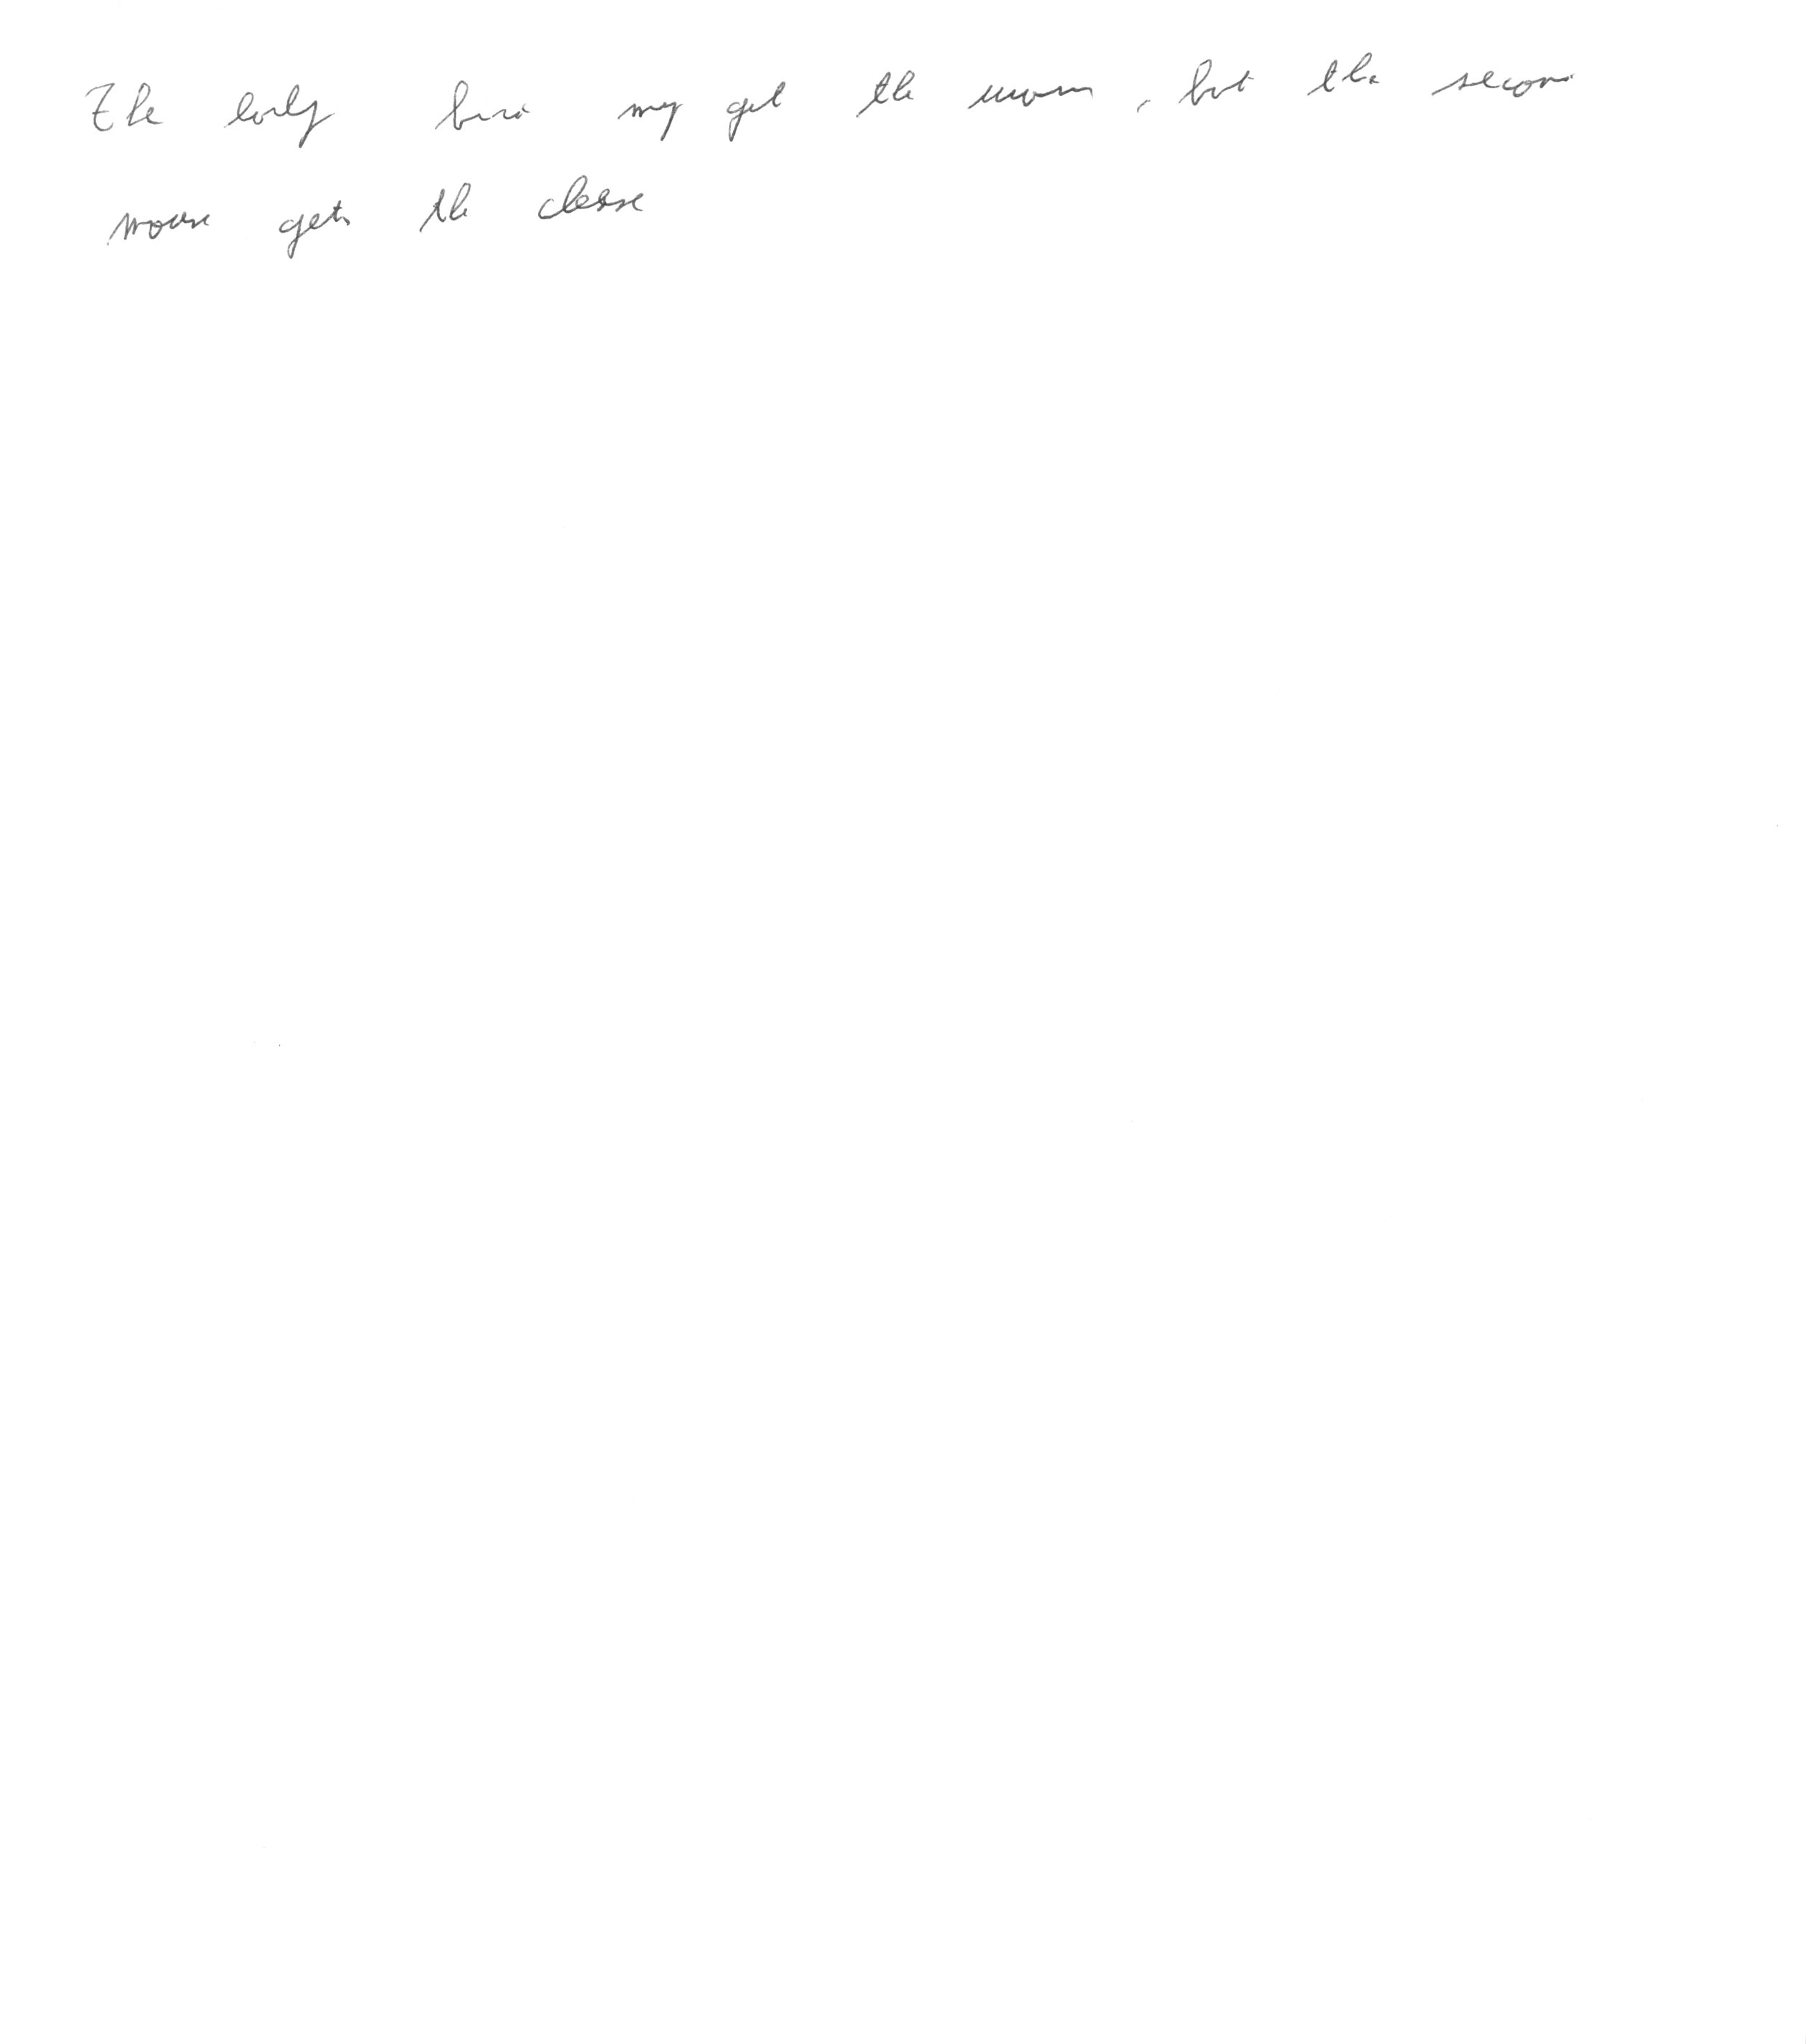 The early bird may get the worm, but the second
mouse gets the cheese